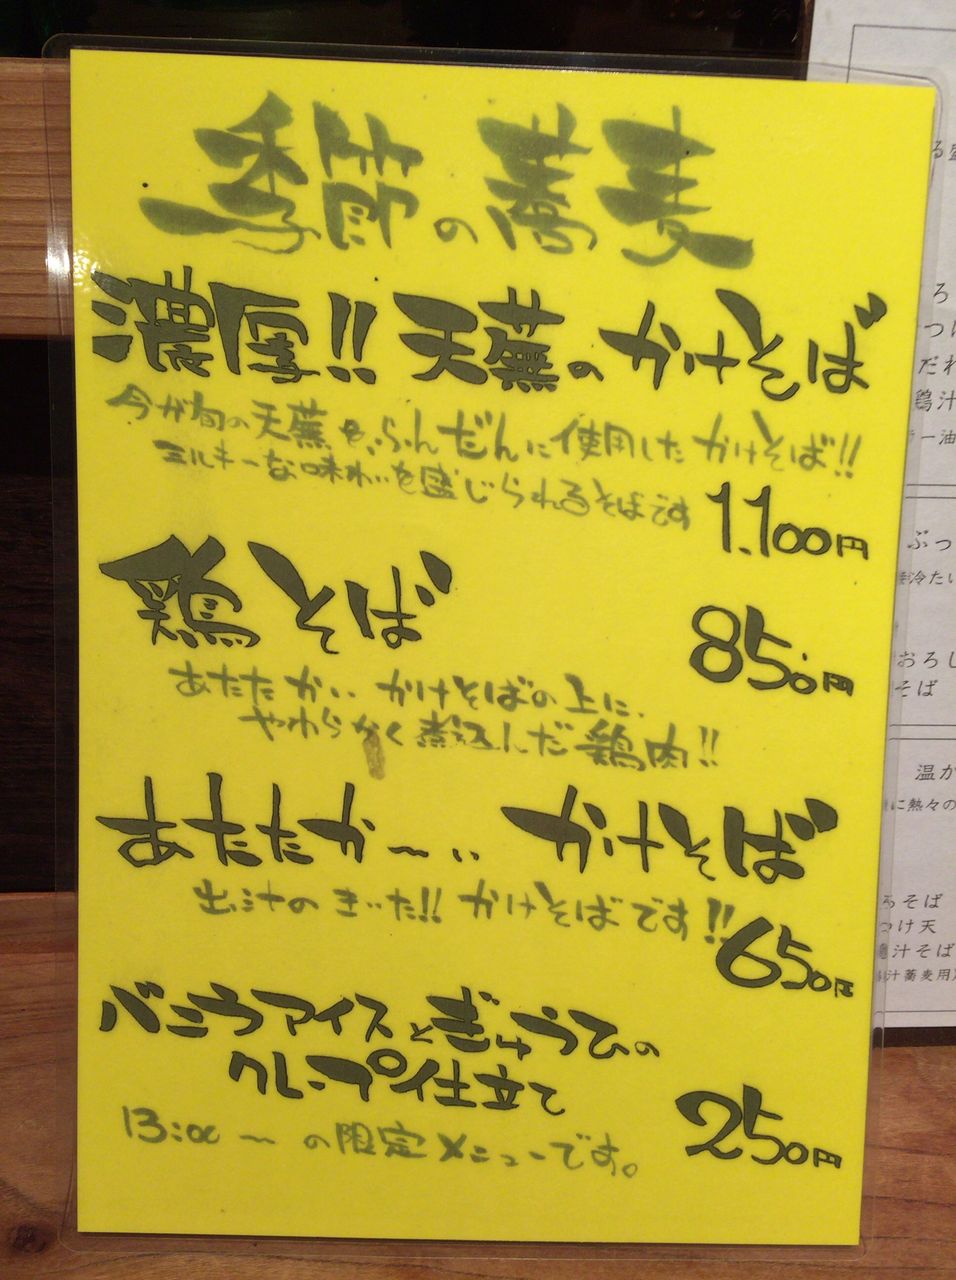 季節の蕎麦
濃厚!! 天蕪のかけそば
今が旬の天蕪をふんだんに使用したかけそば!!
ミルキーな味わいを感じられるそばです
1.100円
鶏そば
850円
あたたかい かけそばの上に、
やわらかく煮込んだ鶏肉!!
あたたか〜い かけそば
出汁のきいた!! かけそばです!!
650円
バニラアイスとぎゅうひの
クレープ仕立て
250円
13:00〜の限定メニューです。
つけ
だれ
鶏汁
ラー油
ぶっ
冷たい
おろし
そば
温か
に熱々の
そば
つけ天
汁そば
汁蕎麦用